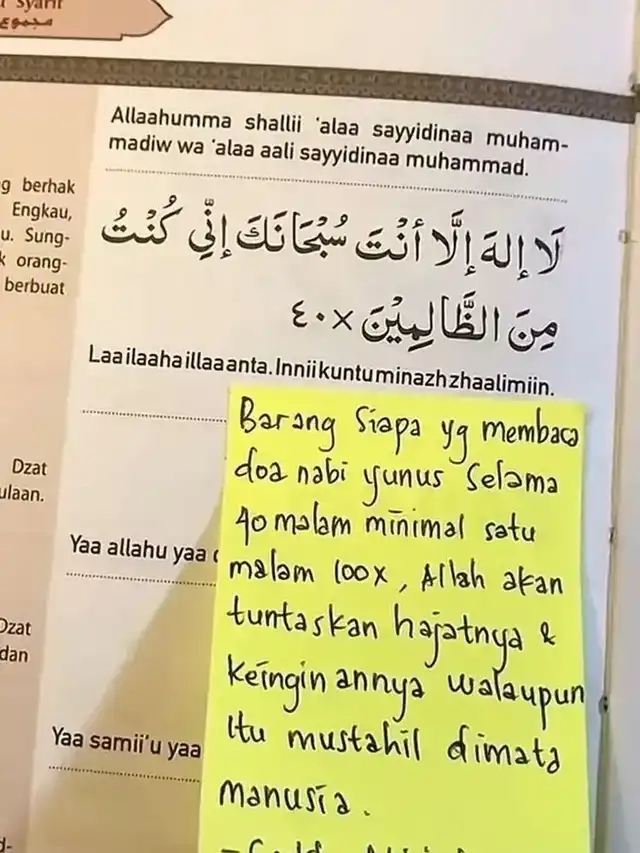 Syarif
Allaahumma shallii 'alaa sayyidinaa muham-
madiw wa 'alaa aali sayyidinaa muhammad.
g berhak
Engkau,
u. Sung-
k orang-
berbuat
لَا إِلهَ إِلَّا أَنْتَ سُبْحَانَكَ إِنِّي كُنْتُ
مِنَ الظَّالِمِيْنَ ×٤٠
Laa ilaaha illaa anta. Innii kuntu minazh zhaalimiin.
Dzat
ulaan.
Yaa allahu yaa
Dzat
dan
Yaa samii'u yaa
d-
Barang siapa yg membaca
doa nabi yunus selama
40 malam minimal satu
malam 100x, Allah akan
tuntaskan hajatnya &
keinginannya walaupun
itu mustahil dimata
manusia.